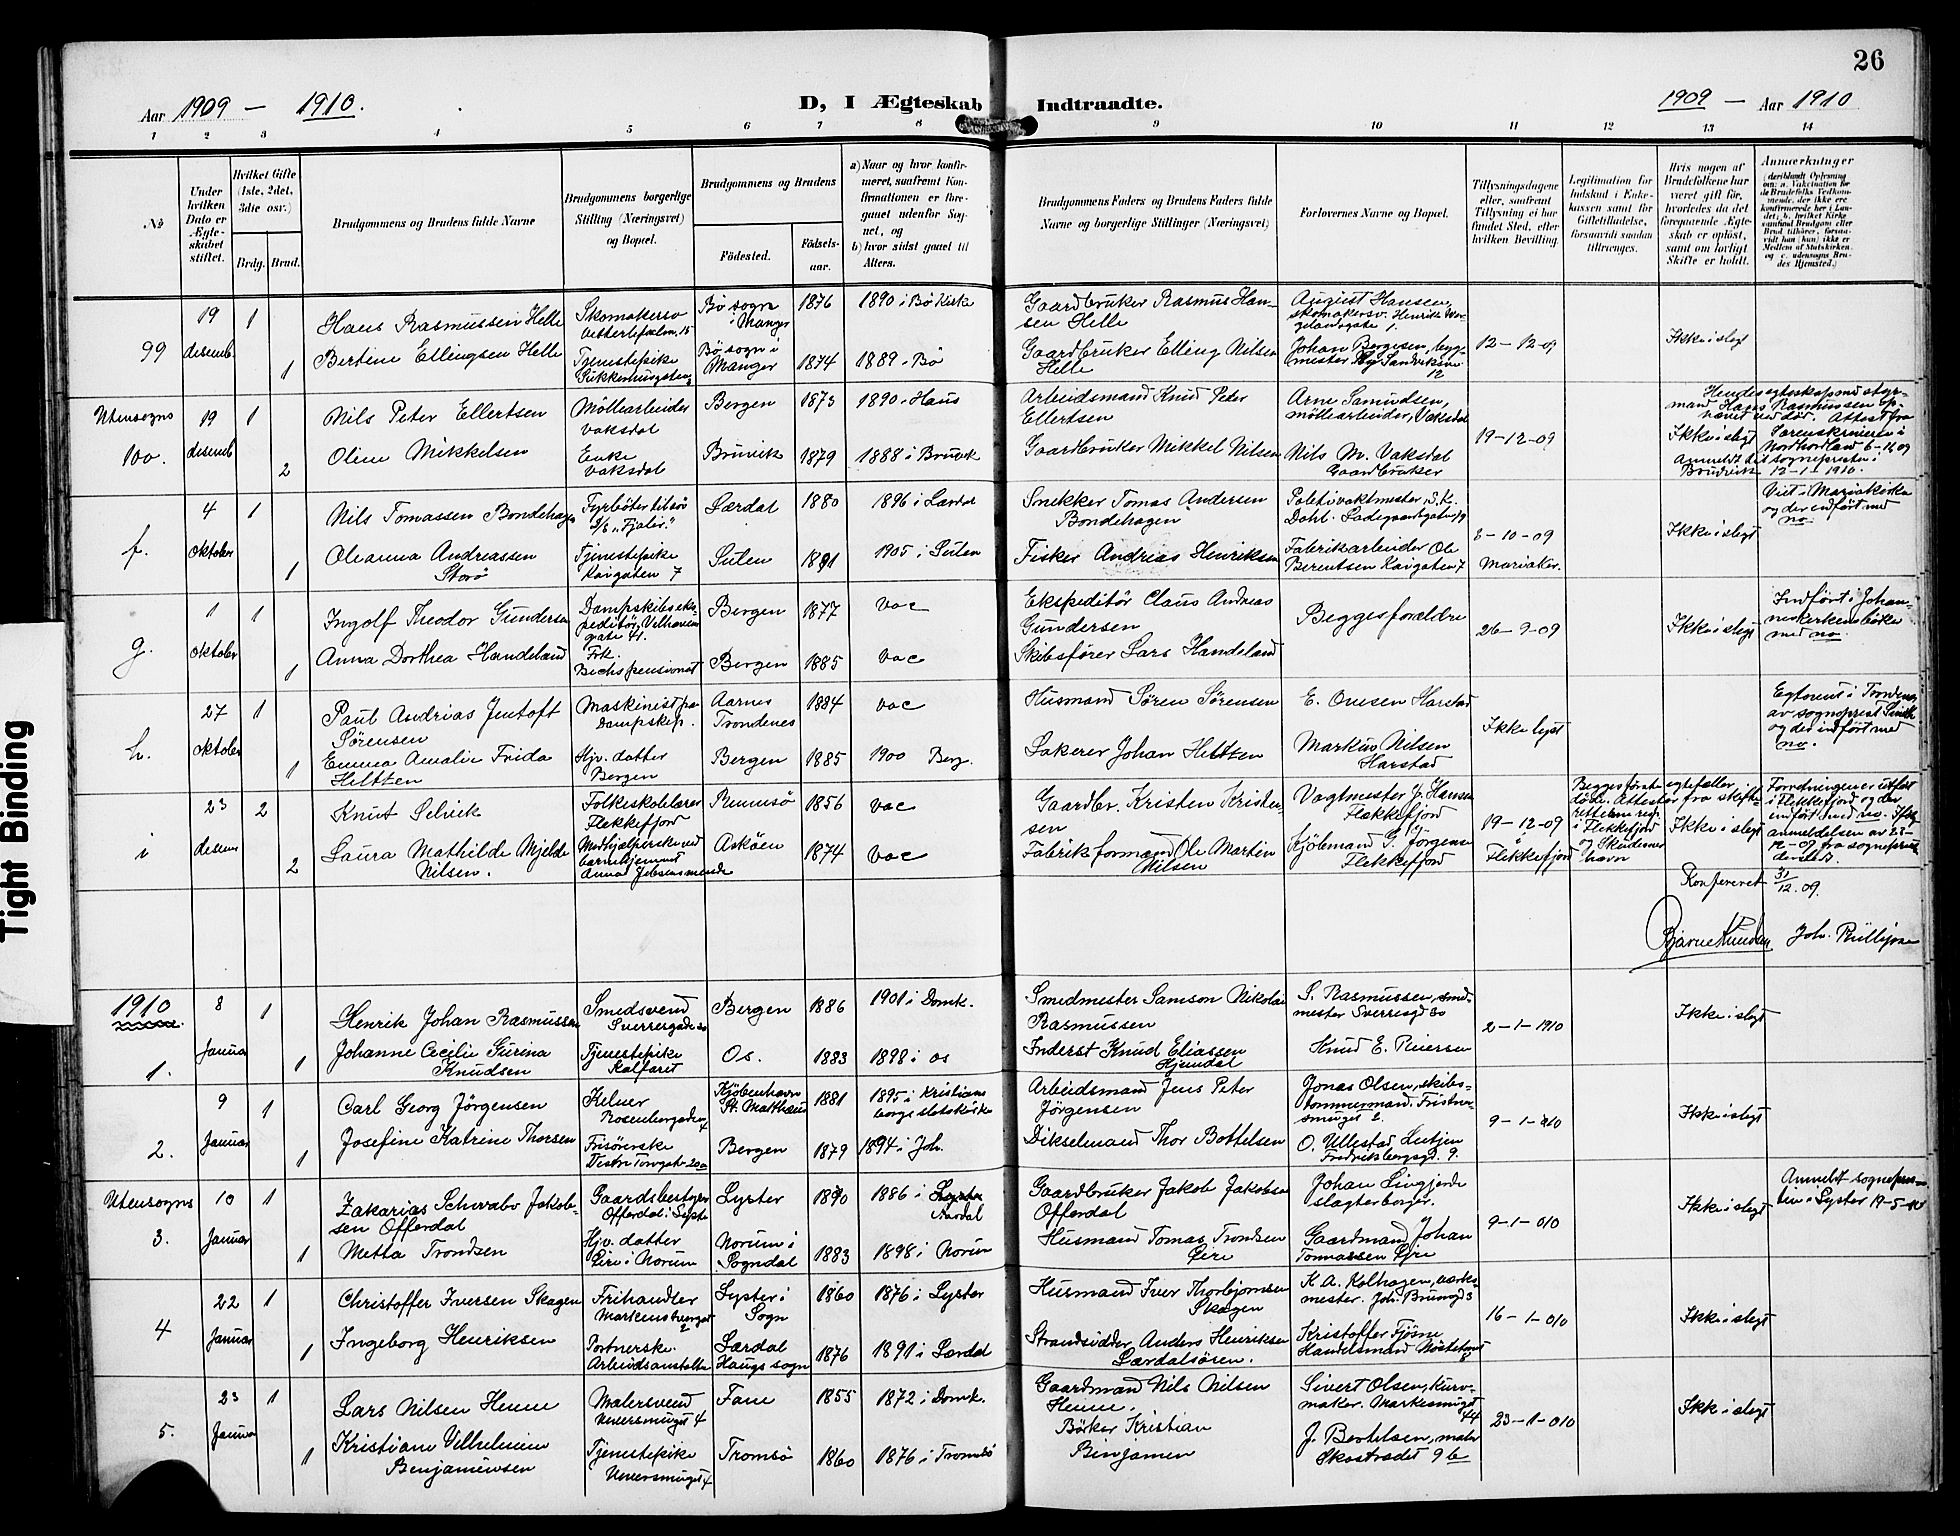 26
Aar 1909 — 1910.
D, I Ægteskab Indtraadte.
1909 — Aar 1910
1 2 3 4 5 6 7 8 9 10 11 12 13 14
No
Under hvilken Dato er Ægteskabet stiftet.
Hvilket Gifte (1ste, 2det, 3die osv.)
Brdg. Brud.
Brudgommens og Brudens fulde Navne
Brudgommens borgerlige Stilling (Næringsvei) og Bopæl.
Brudgommens og Brudens
Fødested.
Fødselsaar.
a) Naar og hvor konfirmeret, saafremt Konfirmationen er foregaaet udenfor Sognet, og
b) hvor sidst gaaet til Alters.
Brudgommens Faders og Brudens Faders fulde Navne og borgerlige Stillinger (Næringsvei)
Forlovernes Navne og Bopæl.
Tillysningsdagene eller, saafremt Tillysning ei har fundet Sted, efter hvilken Bevilling.
Legitimation for Indskud i Enkekassen samt for Giftetilladelse, forsaavidt saadan tiltrænges.
Hvis nogen af Brudefolkene har været gift før, hvorledes da det foregaaende Ægteskab er opløst, samt om lovligt Skifte er holdt.
Anmærkninger
99
19 desemb
1
Hans Rasmussen Helle
Bø sogn i Manger
1876
1890 i Bø Kirke
Gaardbruker Rasmus Hansen Helle
August Hansen, skomakersv. Henrik Wergelandsgate 1.
12-12-09
Ikke i slegt
1
Bertine Ellingsen Helle
Tjenestepike
Bø sogn i Manger
1874
1889 i Bø
Gaardbruker Elling Nilsen Helle
Johan Bergesen, byggmester
Utensogns
100.
19 desemb
1
Nils Peter Ellertsen
Møllearbeider Vaksdal
Bergen
1873
1890 i Haus
Arbeidsmand Knud Peter Ellertsen
Arne Samundsen, møllearbeider, Vaksdal
19-12-09
Ikke i slegt
2
Oline Mikkelsen
Enke Vaksdal
Bruvik
1879
1888 i Bruvik
Gaardbruker Mikkel Nilsen
Nils M. Vaksdal Gaardbruker
f.
4 oktober
1
Nils Tomassen Bondehagen
Fyrbøter tilsø D/S "Fjalir."
Lærdal
1880
1896 i Lærdal
Snekker Tomas Andersen Bondehagen
Politivaktmester, S.K. Dahl. Ladegaardsgaten 9
3-10-09
Mariakir.
Ikke i slegt
Viet i Mariakirke og der indført med no.
1
Oleanna Andreassen Storø
Tjenestepike Kaigaten 7
Sulen
1891
1905 i Sulen
Fisker Andreas Henriksen
Fabrikarbeider Ole Berentsen Kaigaten 7
g.
1 oktober
1
Ingolf Theodor Gundersen
Dampskibsekspeditør, Velhavensgate 41.
Bergen
1877
vac
Ekspeditør Claus Andreas Gundersen
Begges foreldre
26-9-09
Ikke i slegt
Indført i Johanneskirkens bøke med no.
1
Anna Dorthea Handeland
Frk. Bechs pensionat
Bergen
1885
vac
Skibsfører Lars Handeland
h.
27 oktober
1
Paul Andrias Jentoft Sørensen
Maskinist paa Dampskip.
Aarnes Trondenes
1884
vac
Husmand Søren Sørensen
E. Onsen Harstad
Ikke lyst
Egtevict i Trondenes av sogneprest Smith og der indført med no.
1
Emma Amalie Frida Heltzen
Hjv. datter Bergen
Bergen
1885
1900 Berg.
Lakerer Johan Heltzen
Markus Nilsen Harstad
i
23 desem
2
Knut Selvik
Folkeskolelærer Flekkefjord
Rennesö
1856
vac
Gaardbr. Kristen Kristensen
Vagtmester J. Hansen Flekkefjord
19-12-09 i Flekkefjord
Begges første egtefæller døde. Attester fra skifteretterne resp. i Flekkefjord og Skudeneshavn
Ikke i slegt
Forretningen er utført i Flekkefjord og der indført med no.
2
Laura Mathilde Mjelde Nilsen.
Askøen
1874
vac
Fabrikformand Ole Martin Nilsen
Kjøbmand S. Jørgensen Flekkefjord
Konfereret 31/12.09.
1910
1.
8 Januar
1
Henrik Johan Rasmussen
Smedsvend Sverresgade 30
Bergen
1886
1901 i Domk.
Smedmester Samson Nikolai Rasmussen
S. Rasmussen, smedmester Sverresgd 30
2-1-1910
Ikke i slegt
1
Johanne Cecilie Gurina Knudsen
Tjenestepike Kalfaret
Os.
1883
1898 i Os
Inderst Knud Eliassen Hjemdal
Knud E. Reiersen
2.
9 Januar
1
Carl Georg Jörgensen
Kelner Rosenbergsgaden 4
Kjöbenhavn St. Matthæus
1881
1895 i Kristiansborgs slotskirke
Arbeidsmand Jens Peter Jörgensen
Jonas Olsen, skibstømmermand.
9-1-010
Ikke i slegt
1
Josefine Katrine Thorsen
Frisörerske
Bergen
1879
1894 i Joh.
Dikselmand Thor Bottelsen
O. Ullestad, Lutjen Fredriksbergsgd. 9.
Utensogns
3.
10 Januar
1
Zakarias Schwabo Jakobsen Offerdal
Gaardsbestyrer Offerdal i Lyster
Lyster
1890
1886 i Lyster Aardal
Gaardbruker Jakob Jakobsen Offerdal
Johan Lingjerde slagterborger.
9-1-010
Ikke i slegt
Anmeldt sognepresten i Lyster 19-5-10
1
Metta Trondsen
Hjv. datter Eire i Norum
Norum i Sogndal
1883
1898 i Norum
Husmand Tomas Trondsen Eire
Gaardmand Johan Tomassen Eire
4
22 Januar
1
Christoffer Iversen Skagen
Frihandler
Lyster i Sogn
1860
1876 i Lyster
Husmand Iver Thorbjørnsen Skagen
K.A. Kolhagen, verksmester. Joh. Brunsgd 3
16-1-010
Ikke i slegt
1
Ingeborg Henriksen
Portnerske. Arbeidsanstalten
Lærdal Haugs sogn
1876
1891 i Lærdal
Strandsidder Anders Henriksen Lærdalsören.
Kristoffer Tjösne Handelsmand
5.
23 Januar
1
Lars Nilsen Henne
Malersvend
Fane
1855
1872 i Domk.
Gaardmand Nils Nilsen Henne.
Sivert Olsen, kurvmaker. Markesmuget 44
23-1-010
Ikke i slegt
1
Kristiane Vilhelmine Benjaminsen
Tjenestepike
Tromsö
1860
1876 i Tromsö
Bötker Kristian Benjamen
J. Bertelsen, maler Skostrædet 9 b
Tight Binding